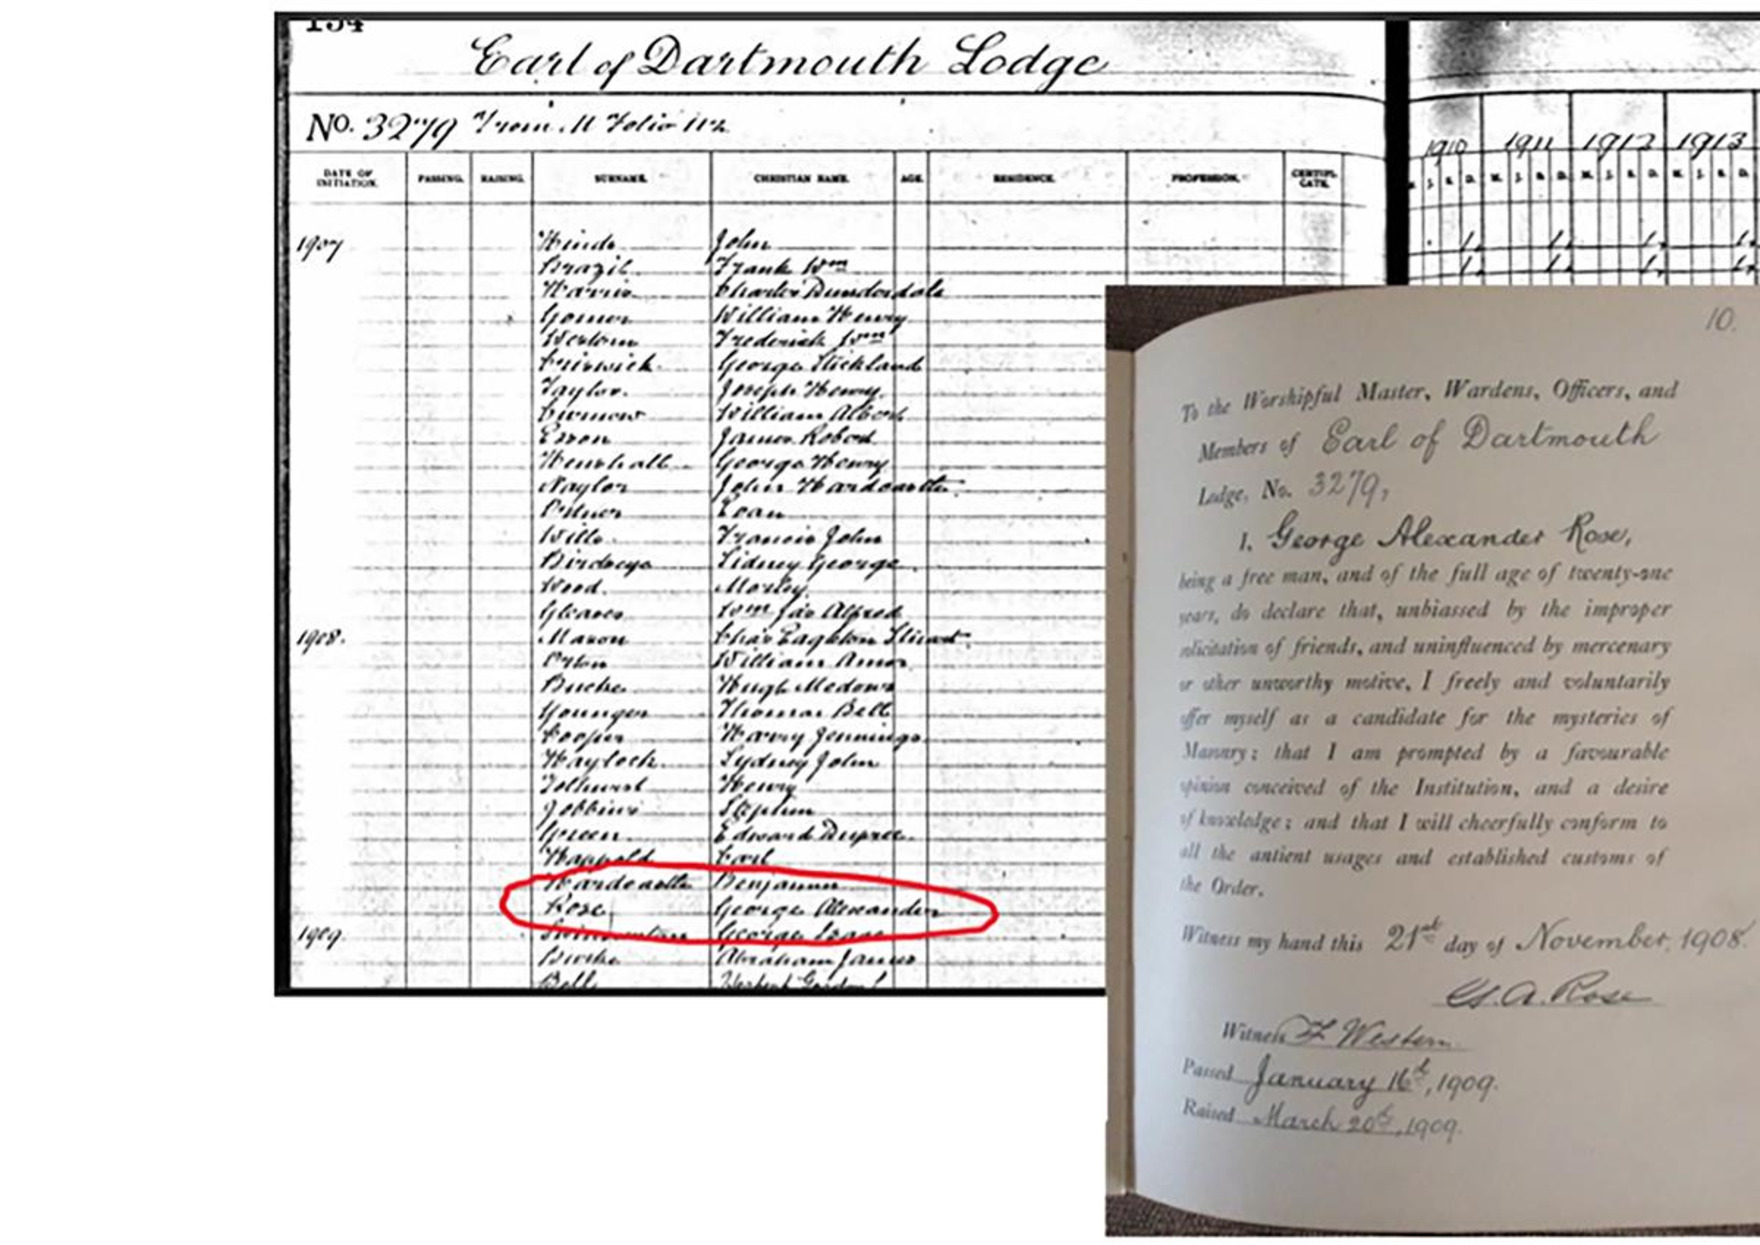 134
Earl of Dartmouth Lodge
No. 3279 From M Folio
DATE OF INITIATION. PASSING. RAISING. SURNAME. CHRISTIAN NAME. AGE. RESIDENCE. PROFESSION. CERTIFI. CATE.
1910 1911 1912 1913
1907 John
Brazil Frank Wm
Harris Charles
William Henry
Western Frederick Wm
George Stickland
Taylor. Joseph Henry
William Albert
James Robert
Henshall George Henry
Naylor John Hardcastle
Evan
Wills Francis John
Birdseye Sidney George
Wood. Morley
Gleaves Wm Jas Alfred
1908. Mason Chas Eagleton Stuart
William Amos
Hugh
Younger Thomas Bell
Cooper Harry Jennings
Haylock. Sydney John
Tolhurst Henry
Jobbins Stephen
Green Edward Dupree
Happold Carl
Hardcastle Benjamin
Rose George Alexander
1909. George Isaac
Burke Abraham James
Bell Herbert Gordon
10.
To the Worshipful Master, Wardens, Officers, and
Members of Earl of Dartmouth
Lodge, No. 3279,
I, George Alexander Rose,
being a free man, and of the full age of twenty-one
years, do declare that, unbiassed by the improper
solicitation of friends, and uninfluenced by mercenary
or other unworthy motive, I freely and voluntarily
offer myself as a candidate for the mysteries of
Masonry; that I am prompted by a favourable
opinion conceived of the Institution, and a desire
of knowledge; and that I will cheerfully conform to
all the antient usages and established customs of
the Order.
Witness my hand this 21st day of November, 1908.
G. A. Rose
Witness F Western
Passed January 16th, 1909.
Raised March 20th, 1909.